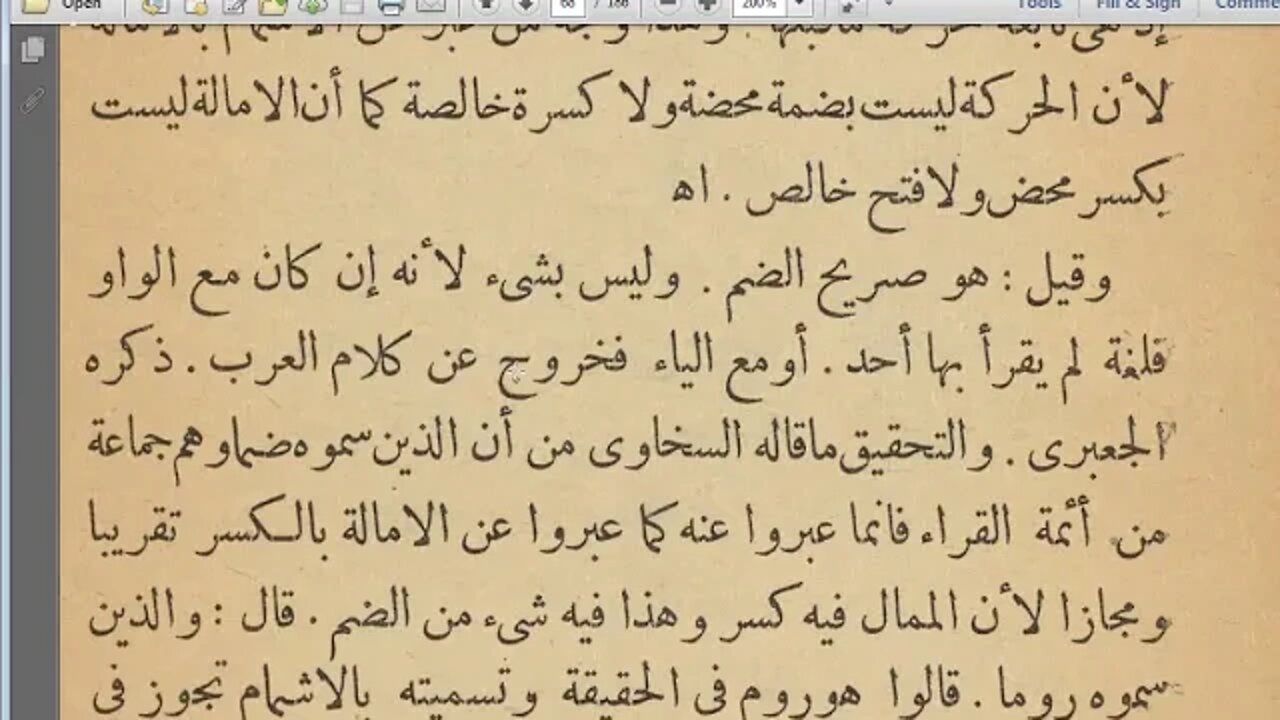 Open 68 / 186 200% Tools Fill & Sign Comme
لأن الحركة ليست بضمة محضة ولا كسرة خالصة كما أن الامالة ليست
بكسر محض ولا فتح خالص . اه
وقيل : هو صريح الضم . وليس بشىء لأنه إن كان مع الواو
فلغة لم يقرأ بها أحد . أو مع الياء فخروج عن كلام العرب . ذكره
الجعبرى . والتحقيق ما قاله السخاوى من أن الذين سموه ضما وهم جماعة
من أئمة القراء فانما عبروا عنه كما عبروا عن الامالة بالكسر تقريبا
ومجازا لأن الممال فيه كسر وهذا فيه شىء من الضم . قال : والذين
سموه روما . قالوا هو روم فى الحقيقة وتسميته بالاشمام تجوز فى